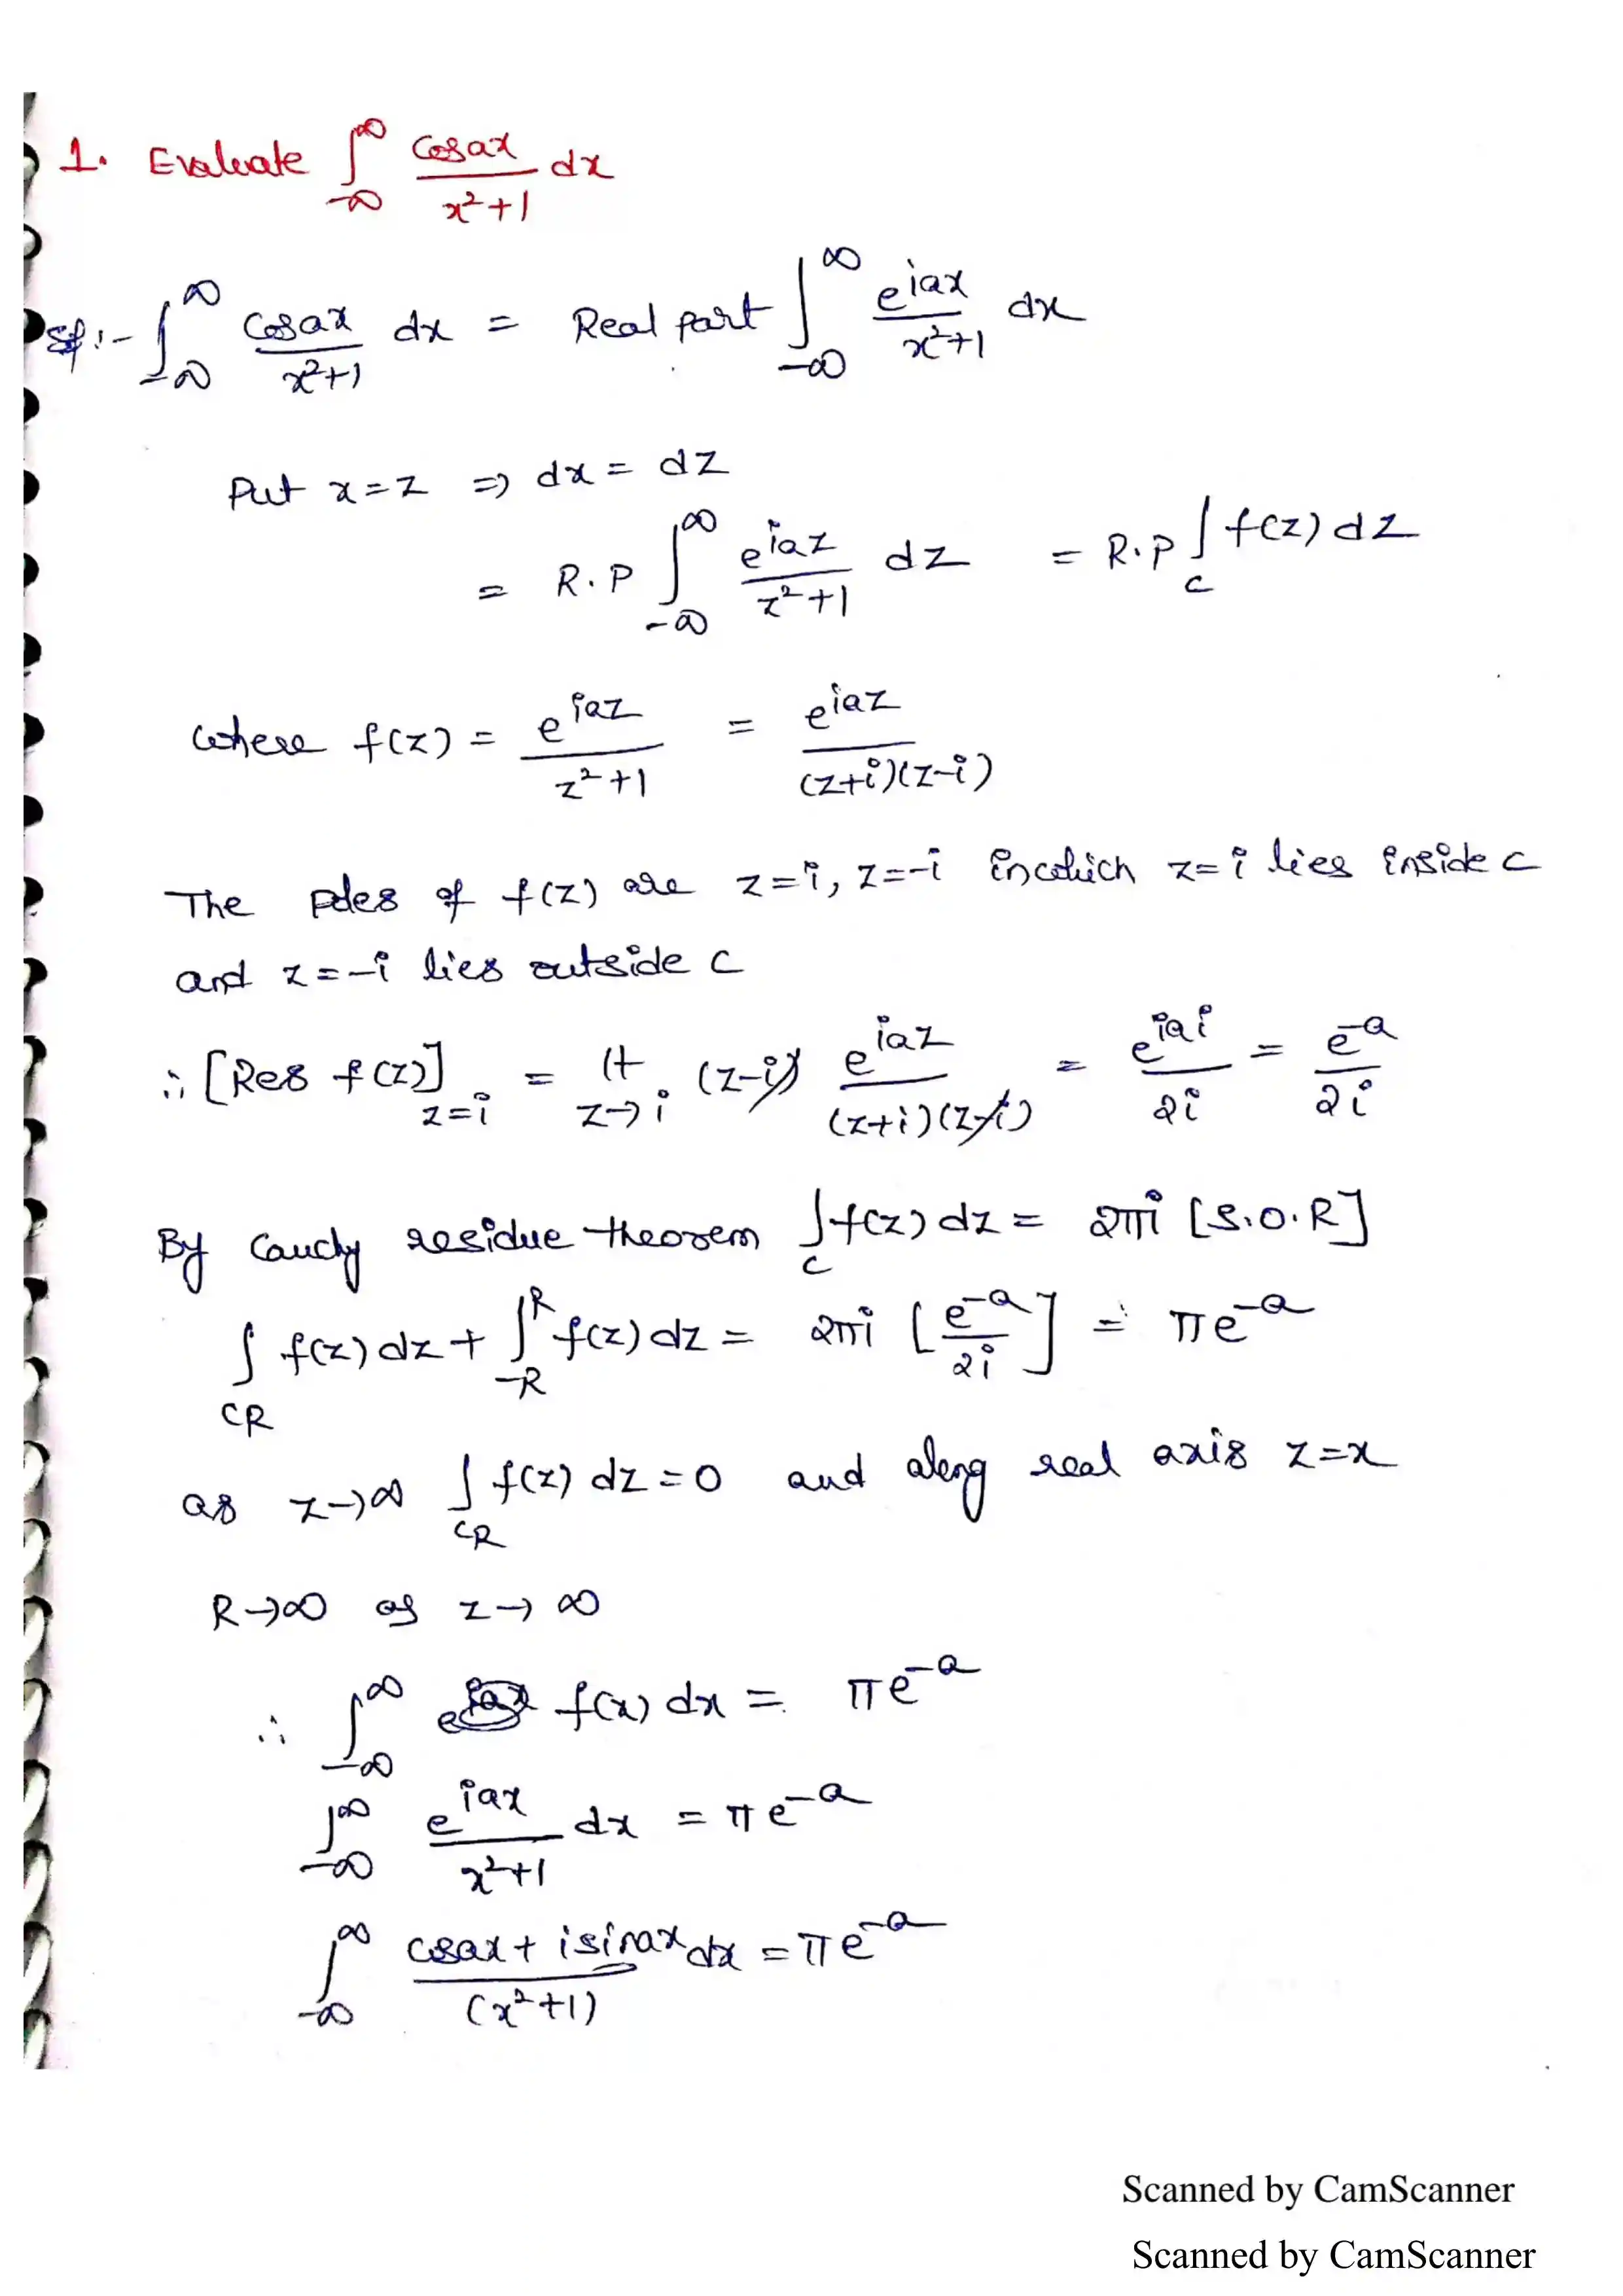 1. Evaluate ∫_{-∞}^{∞} cosax/(x²+1) dx
Sol:- ∫_{-∞}^{∞} cosax/(x²+1) dx = Real part ∫_{-∞}^{∞} e^{iax}/(x²+1) dx
Put x=z ⇒ dx = dz
= R.P ∫_{-∞}^{∞} e^{iaz}/(z²+1) dz = R.P ∫_C f(z) dz
where f(z) = e^{iaz}/(z²+1) = e^{iaz}/((z+i)(z-i))
The poles of f(z) are z=i, z=-i in which z=i lies inside C
and z=-i lies outside C
∴ [Res f(z)]_{z=i} = lt_{z→i} (z-i) e^{iaz}/((z+i)(z-i)) = e^{iai}/2i = e^{-a}/2i
By Cauchy residue theorem ∫_C f(z) dz = 2πi [S.O.R]
∫_{CR} f(z) dz + ∫_{-R}^{R} f(z) dz = 2πi [e^{-a}/2i] = πe^{-a}
as z→∞ ∫_{CR} f(z) dz = 0 and along real axis z=x
R→∞ as z→∞
∴ ∫_{-∞}^{∞} f(x) dx = πe^{-a}
∫_{-∞}^{∞} e^{iax}/(x²+1) dx = πe^{-a}
∫_{-∞}^{∞} cosax + isinax/(x²+1) dx = πe^{-a}
Scanned by CamScanner
Scanned by CamScanner